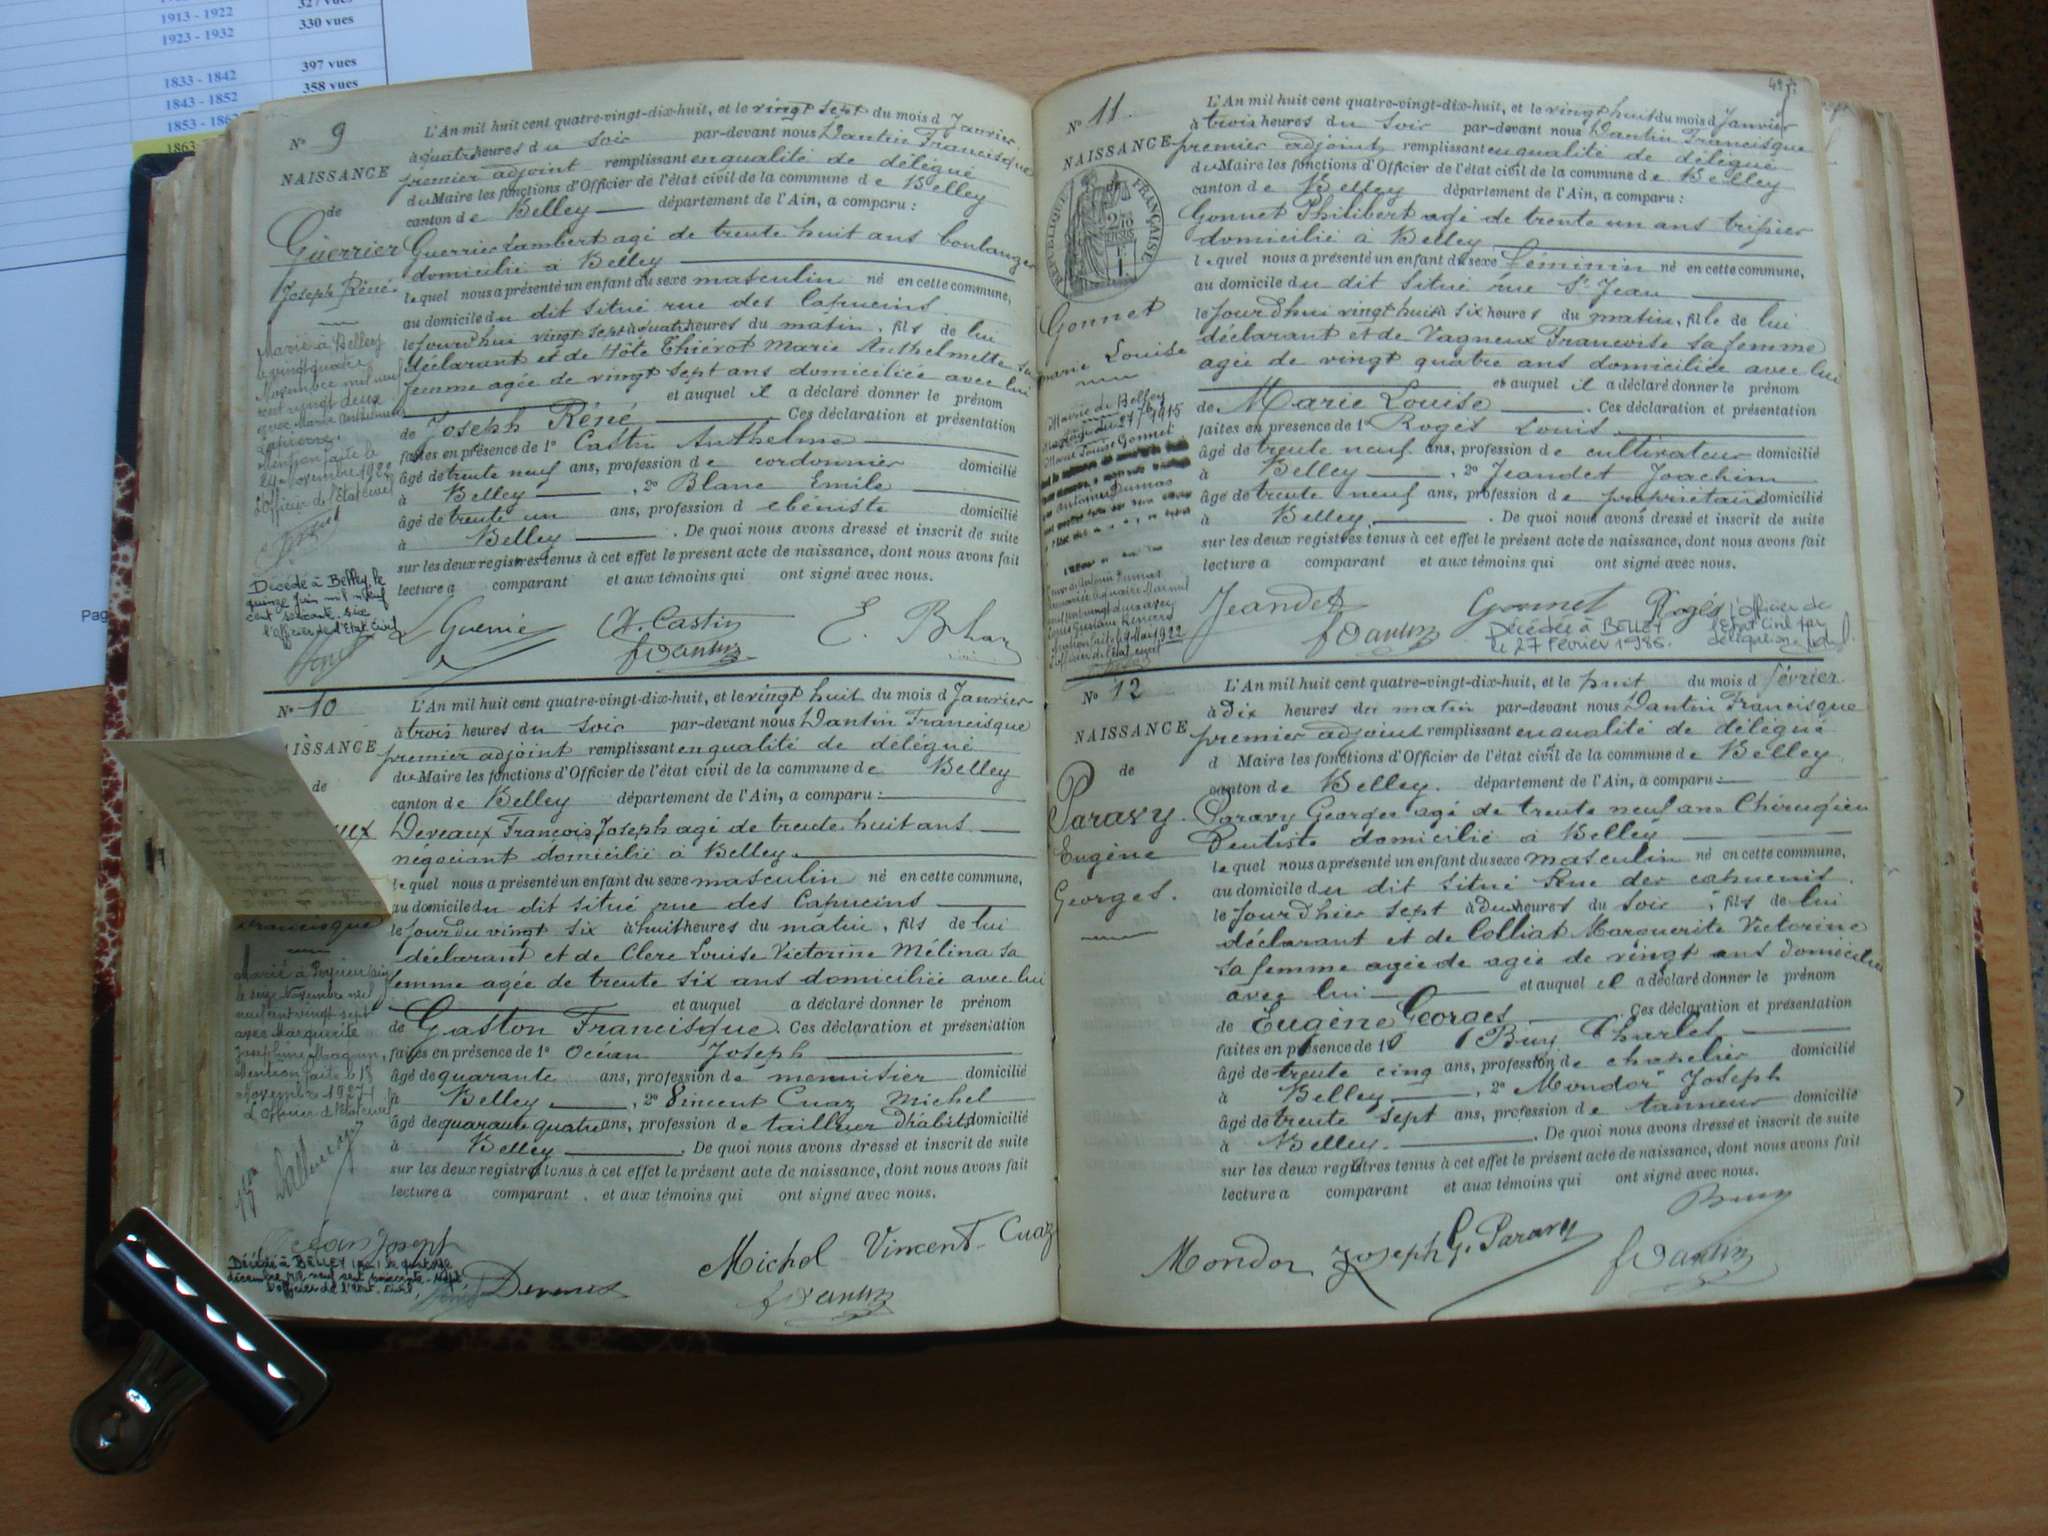 1913 - 1922
327 vues
1923 - 1932
330 vues
1833 - 1842
397 vues
1843 - 1852
358 vues
1853 - 1862
1863 -
Pag
N° 9
NAISSANCE
de
Guerrier
Joseph Réné
Marié à Belley
le vingt quatre
Novembre mil neuf
cent vingt deux
avec Marie Anthelmette
Mention faite le
24 novembre 1922
L'Officier de l'Etat civil
Décédé à Belley, le
quinze Juin mil neuf
cent soixante six
l'officier de l'Etat Civil
L'An mil huit cent quatre-vingt-dix-huit, et le vingt sept du mois d Janvier
à quatre heures du soir par-devant nous Dantin Francisque
premier adjoint remplissant en qualité de délégué
du Maire les fonctions d'Officier de l'état civil de la commune de Belley
canton de Belley département de l'Ain, a comparu :
Guerrier Lambert agé de trente huit ans boulanger
domicilié à Belley
lequel nous a présenté un enfant du sexe masculin né en cette commune,
au domicile du dit situé rue des Capucins
le jourd'hui vingt sept à quatre heures du matin, fils de lui
déclarant et de Hôte Thiérot Marie Anthelmette sa
femme agée de vingt sept ans domiciliée avec lui
et auquel il a déclaré donner le prénom
de Joseph Réné Ces déclaration et présentation
faites en présence de 1° Castin Anthelme
âgé de trente neuf ans, profession de cordonnier domicilié
à Belley , 2° Blanc Emile
âgé de trente un ans, profession d ebéniste domicilié
à Belley . De quoi nous avons dressé et inscrit de suite
sur les deux registres tenus à cet effet le présent acte de naissance, dont nous avons fait
lecture a comparant et aux témoins qui ont signé avec nous.
L Guerrier A. Castin E. Blanc
F Dantin
N° 10
NAISSANCE
de
ux
Francisque
le seize Novembre mil
neuf cent vingt sept
avec Marguerite
Joséphine Magnin,
Mention faite le 18
Novembre 1927
L'Officier de l'Etat civil
L'An mil huit cent quatre-vingt-dix-huit, et le vingt huit du mois d Janvier
à trois heures du soir par-devant nous Dantin Francisque
premier adjoint remplissant en qualité de délégué
du Maire les fonctions d'Officier de l'état civil de la commune de Belley
canton de Belley département de l'Ain, a comparu :
Deveaux François Joseph agé de trente huit ans
négociant domicilié à Belley
lequel nous a présenté un enfant du sexe masculin né en cette commune,
au domicile du dit situé rue des Capucins
le jour du vingt six à huit heures du matin, fils de lui
déclarant et de Clerc Louise Victorine Mélina sa
femme agée de trente six ans domiciliée avec lui
et auquel a déclaré donner le prénom
de Gaston Francisque. Ces déclaration et présentation
faites en présence de 1° Océan Joseph
âgé de quarante ans, profession de menuisier domicilié
à Belley , 2° Vincent Cuaz Michel
âgé de quarante quatre ans, profession de tailleur d'habits domicilié
à Belley . De quoi nous avons dressé et inscrit de suite
sur les deux registres tenus à cet effet le présent acte de naissance, dont nous avons fait
lecture a comparant . et aux témoins qui ont signé avec nous.
Océan Joseph
Michel Vincent-Cuaz
Décédé à BELLEY (Ain) le quatorze
décembre mil neuf cent soixante-sept
l'officier de l'état civil,
F Dantin
N° 11
NAISSANCE
RÉPUBLIQUE FRANÇAISE
Gonnet
Marie Louise
Mairie de Belley
Marie Louise Gonnet
Antoine Dumas
L'An mil huit cent quatre-vingt-dix-huit, et le vingt huit du mois d Janvier
à trois heures du soir par-devant nous Dantin Francisque
premier adjoint remplissant en qualité de délégué
du Maire les fonctions d'Officier de l'état civil de la commune de Belley
canton de Belley département de l'Ain, a comparu :
Gonnet Philibert agé de trente un ans tripier
domicilié à Belley
lequel nous a présenté un enfant du sexe féminin né en cette commune,
au domicile du dit situé rue St Jean
le jourd'hui vingt huit à six heures du matin, fille de lui
déclarant et de Vagneux Francoise sa femme
agée de vingt quatre ans domiciliée avec lui
et auquel il a déclaré donner le prénom
de Marie Louise . Ces déclaration et présentation
faites en présence de 1° Rogès Louis
âgé de trente neuf ans, profession de cultivateur domicilié
à Belley , 2° Jeandet Joachim
âgé de trente neuf ans, profession de propriétaire domicilié
à Belley . De quoi nous avons dressé et inscrit de suite
sur les deux registres tenus à cet effet le présent acte de naissance, dont nous avons fait
lecture a comparant et aux témoins qui ont signé avec nous.
Jeandet Gonnet Rogès
F Dantin
Décédée à BELLEY
le 27 Février 1986.
l'officier de
l'Etat Civil par
délégation
N° 12
NAISSANCE
de
Paravy
Eugène
Georges.
L'An mil huit cent quatre-vingt-dix-huit, et le huit du mois d février
à dix heures du matin par-devant nous Dantin Francisque
premier adjoint remplissant en qualité de délégué
d Maire les fonctions d'Officier de l'état civil de la commune de Belley
canton de Belley. département de l'Ain, a comparu :
Paravy Georges agé de trente neuf ans Chirugien
Dentiste domicilié à Belley
lequel nous a présenté un enfant du sexe masculin né en cette commune,
au domicile du dit situé Rue des capucins
le jour d'hier sept à deux heures du soir , fils de lui
déclarant et de Colliat Marguerite Victorine
sa femme agée de agée de vingt ans domiciliée
avec lui et auquel il a déclaré donner le prénom
de Eugène Georges Ces déclaration et présentation
faites en présence de 1° Buy Charles
âgé de trente cinq ans, profession de chapelier domicilié
à Belley , 2° Mondor Joseph
âgé de trente sept ans, profession de tanneur domicilié
à Belley. . De quoi nous avons dressé et inscrit de suite
sur les deux registres tenus à cet effet le présent acte de naissance, dont nous avons fait
lecture a comparant et aux témoins qui ont signé avec nous.
Buy
Mondor Joseph G. Paravy
F Dantin